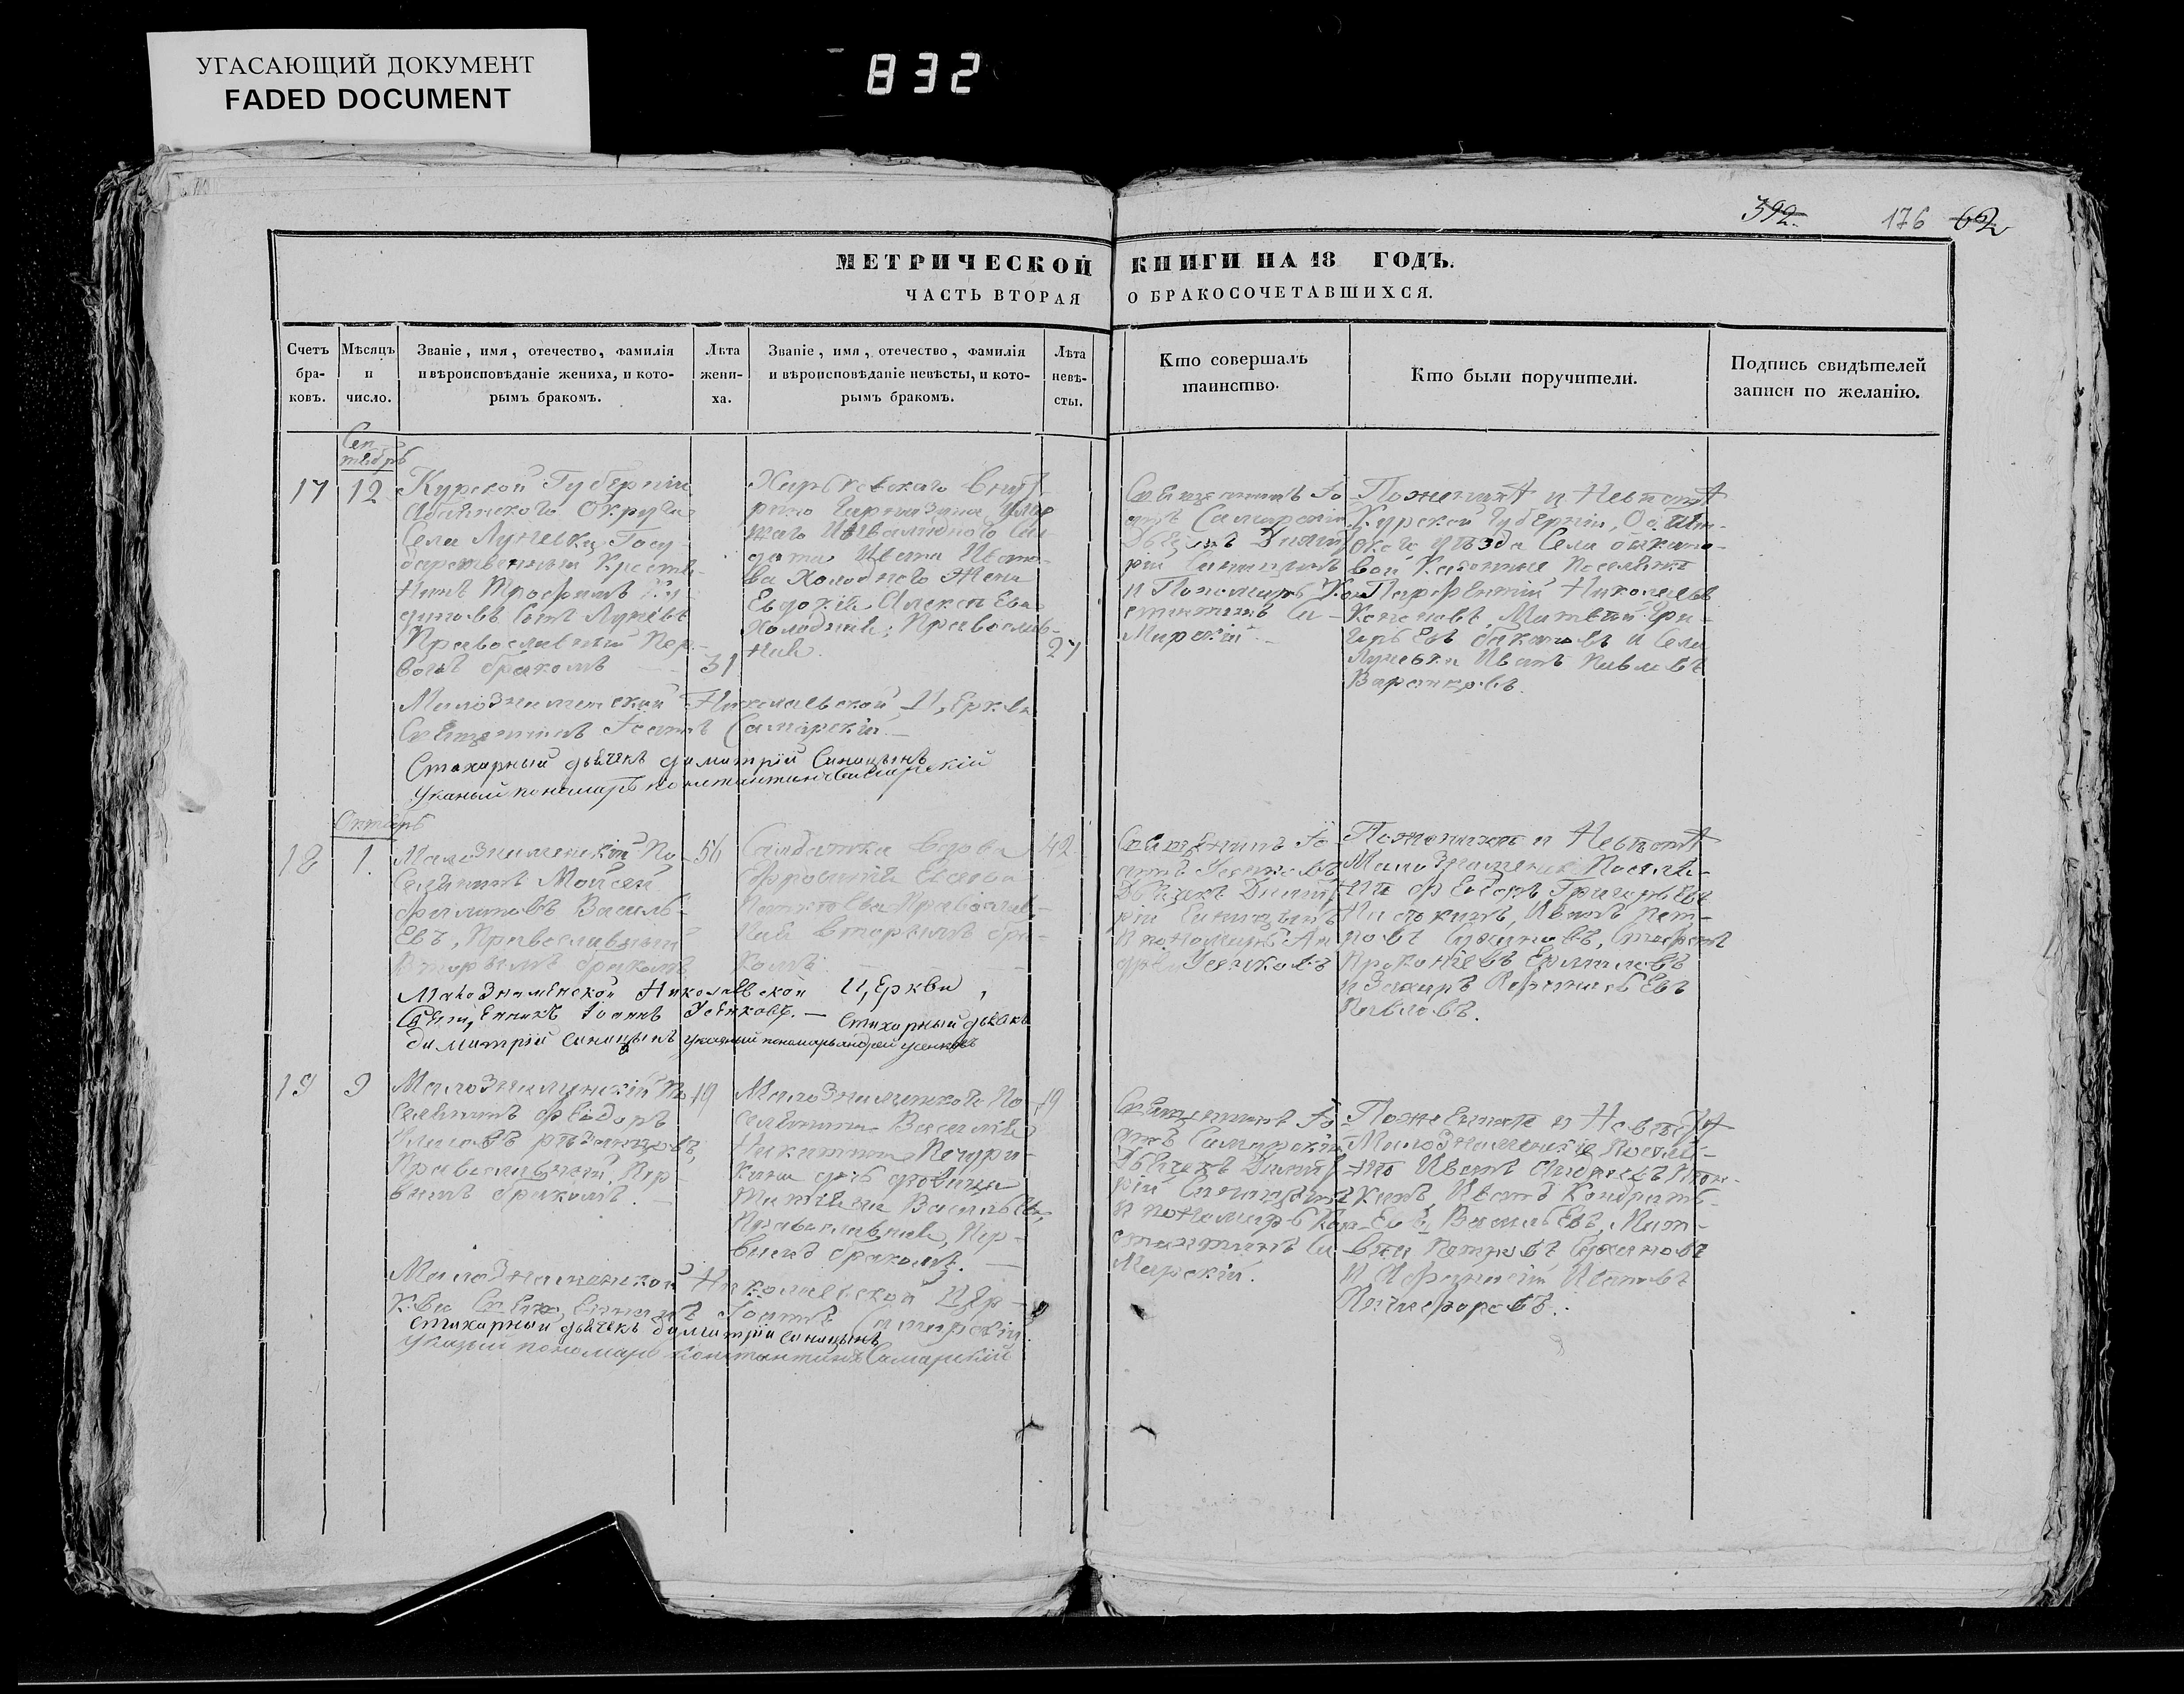 УГАСАЮЩИЙ ДОКУМЕНТ
FADED DOCUMENT
832
392.
176
62
МЕТРИЧЕСКОЙ КНИГИ НА 18 ГОДЪ.
ЧАСТЬ ВТОРАЯ О БРАКОСОЧЕТАВШИХСЯ.
Счетъ
бра-
ковъ.
Мѣсяцъ
и
число.
Званіе, имя, отечество, фамилія
и вѣроисповѣданіе жениха, и кото-
рымъ бракомъ.
Лѣта
жени-
ха.
Званіе, имя, отечество, фамилія
и вѣроисповѣданіе невѣсты, и кото-
рымъ бракомъ.
Лѣта
невѣ-
сты.
Кто совершалъ
таинство.
Кто были поручители.
Подпись свидѣтелей
записи по желанію.
Сен
тябрь
17
12
Курской Губерніи
Округа
Села Луневки Госу-
дарственный Крестья-
нинъ Трофимъ
сынъ Луневъ
Православный Пер-
вымъ бракомъ
31
Харьковскаго Внут
рняго Гарнизона
Инвалиднаго Сал
дата Ивана Ивано
ва Холоднаго Жена
Евдокія Алексѣева
Холодная; Православ-
ная
27
Священникъ Іо
аннъ Самарскій
Дьячекъ Димит
рій Синицынъ
и Пономарь Кон
стантинъ Са-
марскій.
По женихѣ и Невѣстѣ
Курской Губерніи,
скаго уѣзда Села
Казенные Поселяне
Парфентій Николаевъ
Матвѣй Гри-
горьевъ и Села
Луневки Иванъ Павловъ
Малознаменской Николаевской Церкви
Священникъ Іоаннъ Самарскій.
Стихарный дьячекъ димитрій Синицынъ
Указный пономарь константинъ Самарскій
Октябрь
18
1.
Малознаменскій По-
селянинъ Мойсей
Филиповъ Василь-
евъ, Православный
Вторымъ бракомъ
56
Салдатка вдова
Православ-
ная вторымъ бра-
комъ
42
Священникъ Іо
аннъ Усенковъ
Дьячекъ Димит
рій Синицынъ
и пономарь Ан
дрей Усенковъ
По женихѣ и Невѣстѣ
Малознаменскіе Поселя-
не Феодоръ Григорьевъ
Иванъ Пет-
ровъ
Прокофіевъ Ермиловъ
и Захаръ
Павловъ.
Малознаменской Николаевской Церкви,
Священникъ Іоаннъ Усенковъ. — Стихарный дьячекъ
димитрій синицынъ указный пономарь андрей усенковъ
19
9
Малознаменскій По
селянинъ Феодоръ
Православный, Пер-
вымъ бракомъ.
19
Малознаменскаго По
селянина Василія
Никитина Печури-
кина дочь дѣвица
Татіана Васильева,
Православная, Пер-
вымъ бракомъ.
19
Священникъ Іо
аннъ Самарскій
Дьячекъ Димит
рій Синицынъ
и пономарь Кон
стантинъ Са
марскій.
По женихѣ и Невѣстѣ
Малознаменскіе Поселя-
не Иванъ Андреевъ
Иванъ Кондрать-
евъ Васильевъ, Мат-
вѣй Петровъ
и Афанасій Ивановъ
Никифоровъ.
Малознаменской Николаевской Цер-
кви Священникъ Іоаннъ Самарскій.
Стихарный дьячекъ димитрій синицынъ
Указный пономарь константинъ Самарскій